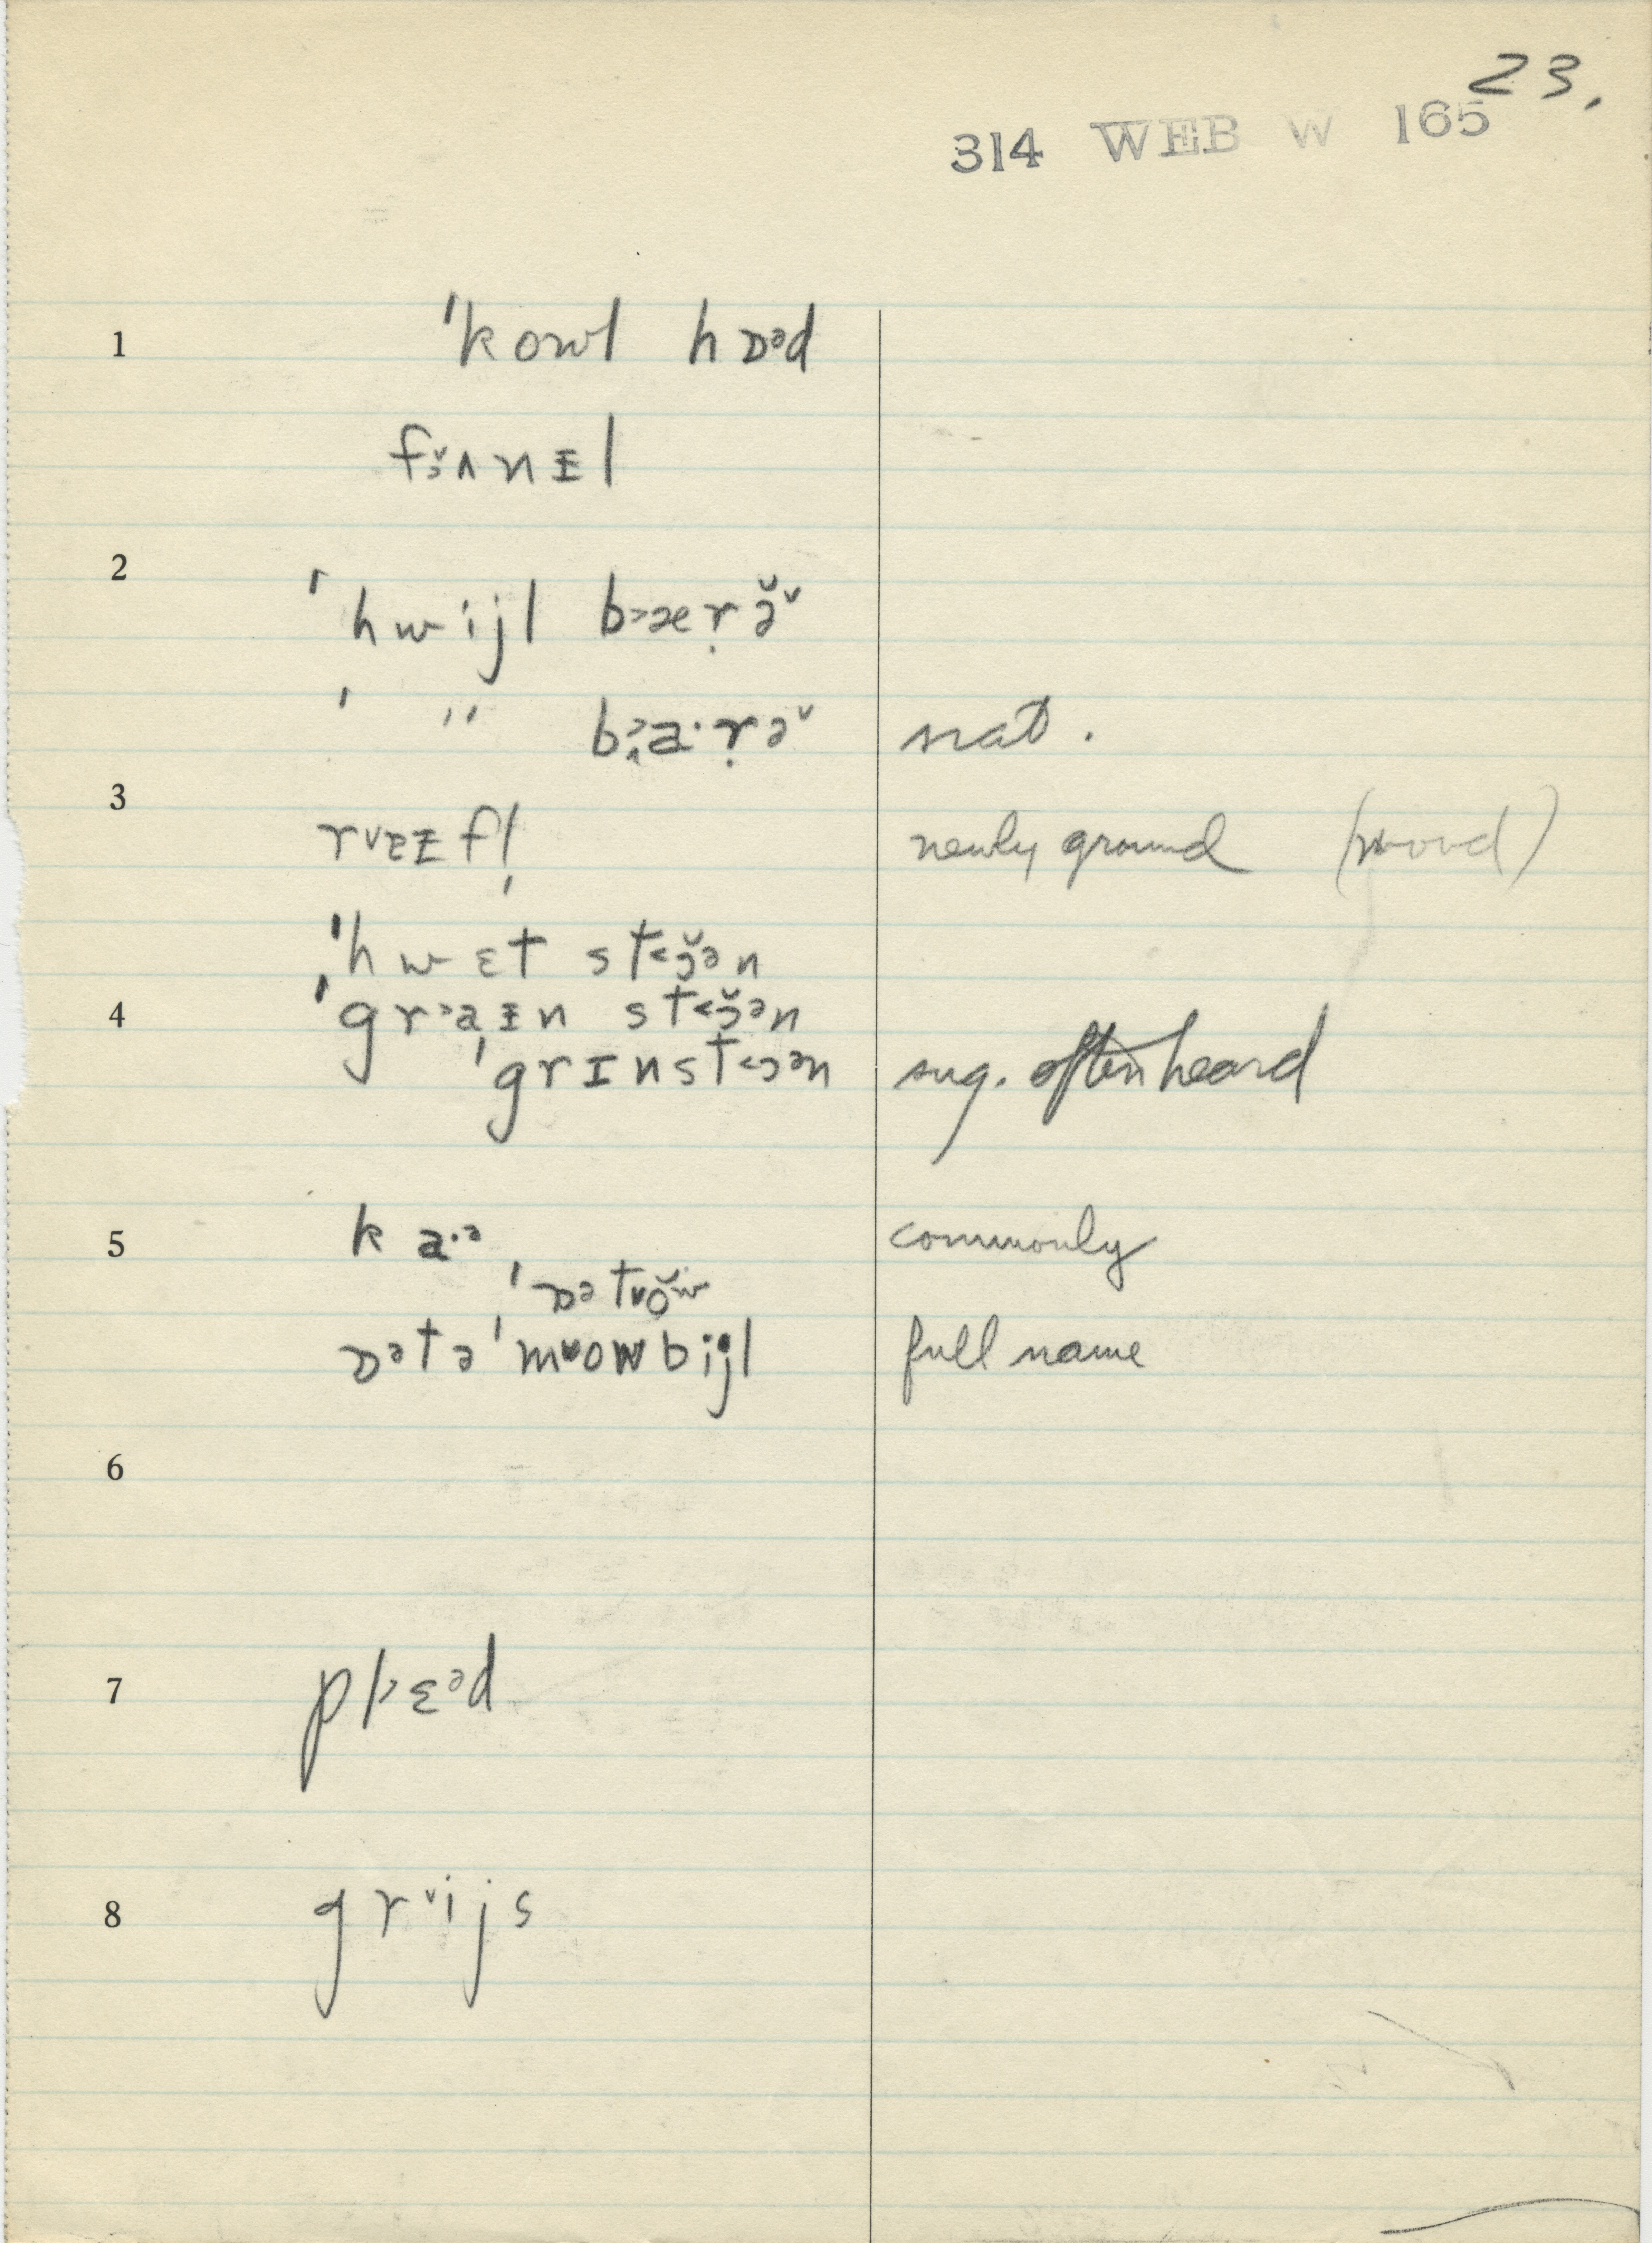 23.
314 WEB W 165
1 ˈkowl hɒᵊd
fɔ̆˅ʌnɪ̵l
2 ˈhwijl b˃ærə̣̆˅
ˈ " b˃a·ṛə˅ nat.
3 r˅ɐɪ̵fl̩ newly ground (wood)
ˈhwɛt st˂ɔ̆ən
4 ˈgr˃aɪ̵n st˂ɔ̆ən
ˈgrɪnst˂ɔən sug. often heard
5 ka·ᵊ commonly
ˈɒət˅ŏw
ɒᵊtəˈm˅owbijl full name
6
7 pl˃ɛᵊd
8 gr˅ijs